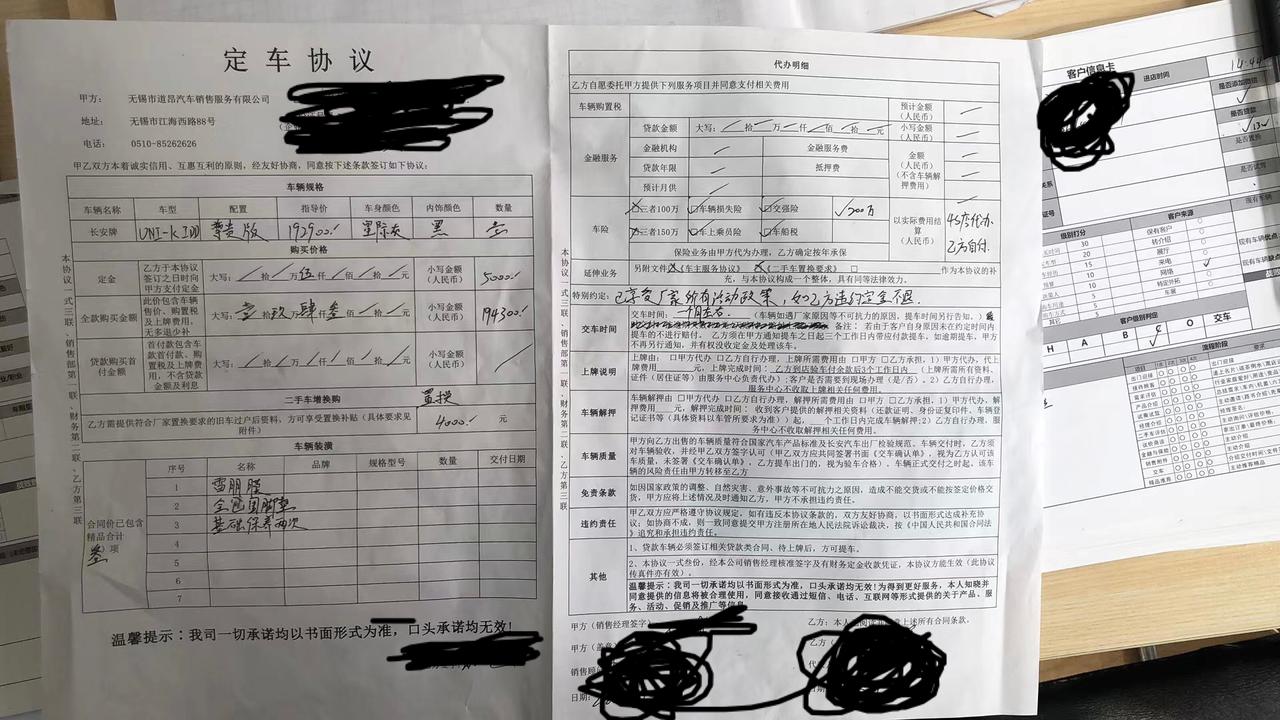 定车协议
甲方： 无锡市道昂汽车销售服务有限公司
地址： 无锡市江海西路88号
电话： 0510-85262626
甲乙双方本着诚实信用、互惠互利的原则，经友好协商，同意按下述条款签订如下协议：
车辆规格
车辆名称 车型 配置 指导价 车身颜色 内饰颜色 数量
长安牌 UNI-K IDD 尊贵版 192900 星际灰 黑 壹
购买价格
定金 乙方于本协议签订之日时向甲方支付定金 大写： 拾 万 伍 仟 佰 拾 元 小写金额（人民币） 5000
全款购买金额 此价包含车辆售价、购置税及上牌费用，无多退少补。 大写：壹 拾 玖 万 肆 仟 叁 佰 拾 元 小写金额（人民币） 194300
贷款购买首付金额 首付款包含车款首付款、购置税及上牌费用，不含贷款金额及利息 大写： 拾 万 仟 佰 拾 元 小写金额（人民币）
二手车增换购 置换
乙方需提供符合厂家置换要求的旧车过户后资料，方可享受置换补贴（具体要求见附件） 4000 元
车辆装潢
合同价已包含精品合计 叁 项
序号 名称 品牌 规格型号 数量 交付日期
1 雷朋膜
2 全包围脚垫
3 基础保养两次
4
5
6
7
温馨提示：我司一切承诺均以书面形式为准，口头承诺均无效！
本协议一式三联，销售部第一联，财务第二联，乙方第三联
代办明细
乙方自愿委托甲方提供下列服务项目并同意支付相关费用
车辆购置税 预计金额（人民币）
金融服务 贷款金额 大写： 拾 万 仟 佰 拾 元 小写金额（人民币）
金融机构 金融服务费 金额（人民币）（不含车辆解押费用）
贷款年限 抵押费
预计月供
车险 三者100万 车辆损失险 交强险 200万 以实际费用结算（人民币） 4S店代办，乙方自付
三者150万 车上乘员险 车船税
保险业务由甲方代为办理，乙方确定按年承保
延伸业务 另附文件《车主服务协议》 《二手车置换要求》 □ 作为本协议的补充，与本协议构成一个整体，具有同等法律效力。
特别约定：已享受厂家所有活动政策，如乙方违约定金不退
交车时间 交车时间：一个月左右 （车辆如遇厂家原因等不可抗力原因，提车时间另行告知。）
备注：若由于客户自身原因未在约定时间内提车的不进行赔付。乙方须在甲方通知提车之日起三个工作日内带应付款提车，如逾期提车，甲方不再另行通知，并有权没收定金及处理该车。
上牌说明 上牌由：□甲方代办 □乙方自行办理，上牌所需费用由 □甲方 □乙方承担，1）甲方代办，代上牌费用 元，上牌完成时间：乙方到店验车付全款后3个工作日内 （上牌需所有资料、证件（居住证等）由服务中心负责代办）；客户是否需要到现场办理（是/否）。2）乙方自行办理，服务中心不收取上牌相关任何费用。
车辆解押 车辆解押由 □甲方代办 □乙方自行办理，解押所需费用由 □甲方 □乙方承担。1）甲方代办，解押费用 元，解押完成时间：收到客户提供的解押相关资料（还款证明、身份证复印件、车辆登记证书等（具体资料以车管所要求为准））起， 个工作日内完成车辆解押；2）乙方自行办理，服务中心不收取解押相关任何费用。
车辆质量 甲方向乙方出售的车辆质量符合国家汽车产品标准及长安汽车出厂检验规范。车辆交付时，乙方须对车辆验收，并经甲乙双方签字认可（甲乙双方应共同签署书面《交车确认单》，视为乙方认可该车质量，未签署《交车确认单》，乙方提车出门的，视为验车合格）。车辆正式交付之时起，该车辆的风险责任由甲方转移至乙方
免责条款 如因国家政策的调整、自然灾害、意外事故等不可抗力之原因，造成不能交货或不能按签定价格交货，甲方应将上述情况及时通知乙方，甲方不承担违约责任。
违约责任 甲乙双方应严格遵守协议规定，如有违反本协议条款的，双方友好协商，以书面形式达成补充协议；如协商不成，则一致同意提交甲方注册所在地人民法院诉讼裁决，按《中国人民共和国合同法》追究和承担违约责任。
其他 1、贷款车辆必须签订相关贷款类合同、待上牌后，方可提车。
2、本协议一式叁份，经本公司销售经理核准签字及有财务定金收款凭证，本协议方能生效（此协议传真件亦有效）。
温馨提示：我司一切承诺均以书面形式为准，口头承诺均无效！为得到更好服务，本人知晓并同意提供的信息将被合理使用，同意接收通过短信、电话、互联网等形式提供的关于产品、服务、活动、促销及推广等信息
甲方（销售经理签字）
乙方：本人
上述所有合同条款。
甲方（盖章）
销售顾
日期：
客户信息卡
进店时间 14:44
是否添加微信
是否贷款
是否置换
是否试驾
客户来源
保有客户
转介绍
展厅
来电
网络
特定外拓
车展
级别打分
30
20
15
10
5
5
客户级别判定
H A B C O 交车
流程阶段